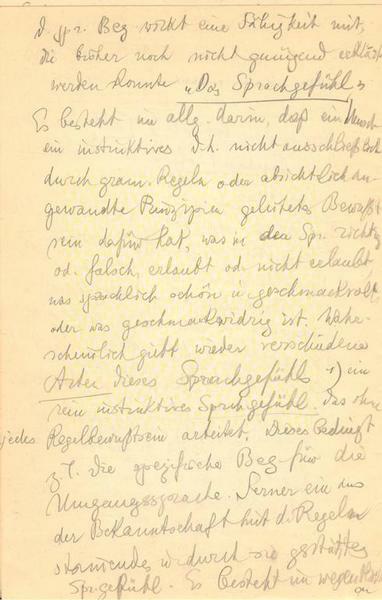 d. spr. Beg. wirkt eine Fähigkeit mit,
die bisher noch nicht genügend erklärt
werden konnte "Das Sprachgefühl"
Es besteht im allg. darin, daß ein Mensch
ein instinktives d.h. nicht ausschließlich
durch gram. Regeln oder absichtlich an-
gewandte Prinzipien geleitetes Bewußt
sein dafür hat, was in der Spr. richtig
od. falsch, erlaubt od. nicht erlaubt,
was sprachlich schön u. geschmackvoll
oder was geschmackwidrig ist. Wahr-
scheinlich gibt wieder verschiedene
Arten dieses Sprachgefühls 1) ein
rein instinktives Sprachgefühl, das ohne
jedes Regelbewußtsein arbeitet. Dieses bedingt
z.T. die spezifische Beg. für die
Umgangssprache. Ferner ein aus
der Bekanntschaft mit d. Regeln
stammendes u. durch sie gestütztes
Spr.gefühl. Es besteht im